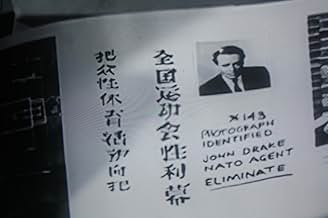 全国运动会性利幕
把众性休育活动向犯
* 143
PHOTOGRAPH
IDENTIFIED
JOHN DRAKE
NATO AGENT
ELIMINATE